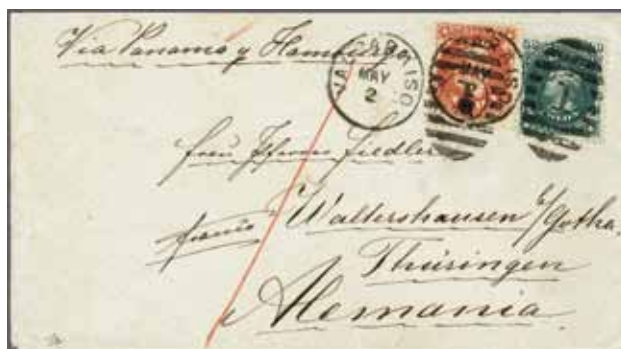 Via Panama y Hamburgo
VALPARAISO
MAY
2
Frau Fiedler
franco
Waltershausen b/Gotha.
Thüringen
Alemania